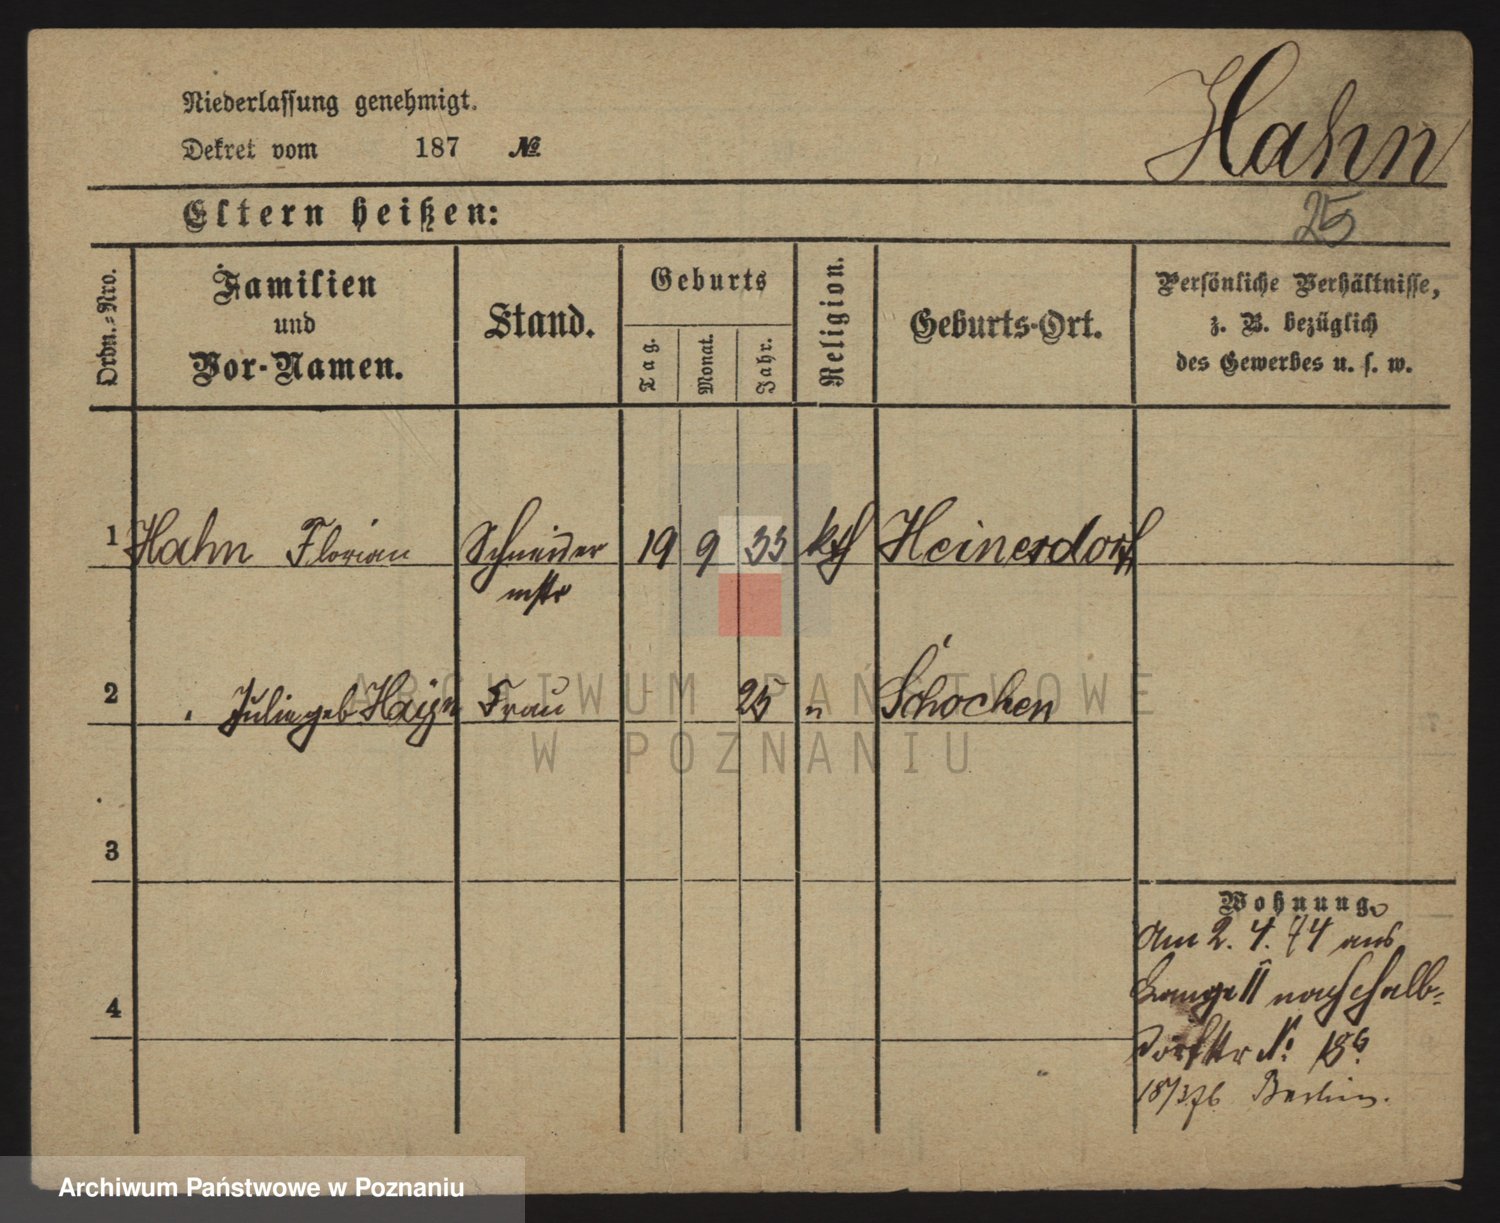 Niederlassung genehmigt.
Dekret vom 187 №
Hahn
25
Eltern heißen:
Ordn.-Nro.
Familien
und
Vor-Namen.
Stand.
Geburts
Tag.
Monat.
Jahr.
Religion.
Geburts-Ort.
Persönliche Verhältnisse,
z. B. bezüglich
des Gewerbes u. s. w.
1 Hahn Florian Schneider 19 9 33 kth Heinersdorf
mstr
2 Julie geb Frau 25 " Schocken
3
4
Wohnung.
Am 2. 4. 74 aus
Lange II nach Halb-
dorfstr №
18/3 76 Berlin.
ARCHIWUM PAŃSTWOWE
W POZNANIU
Archiwum Państwowe w Poznaniu